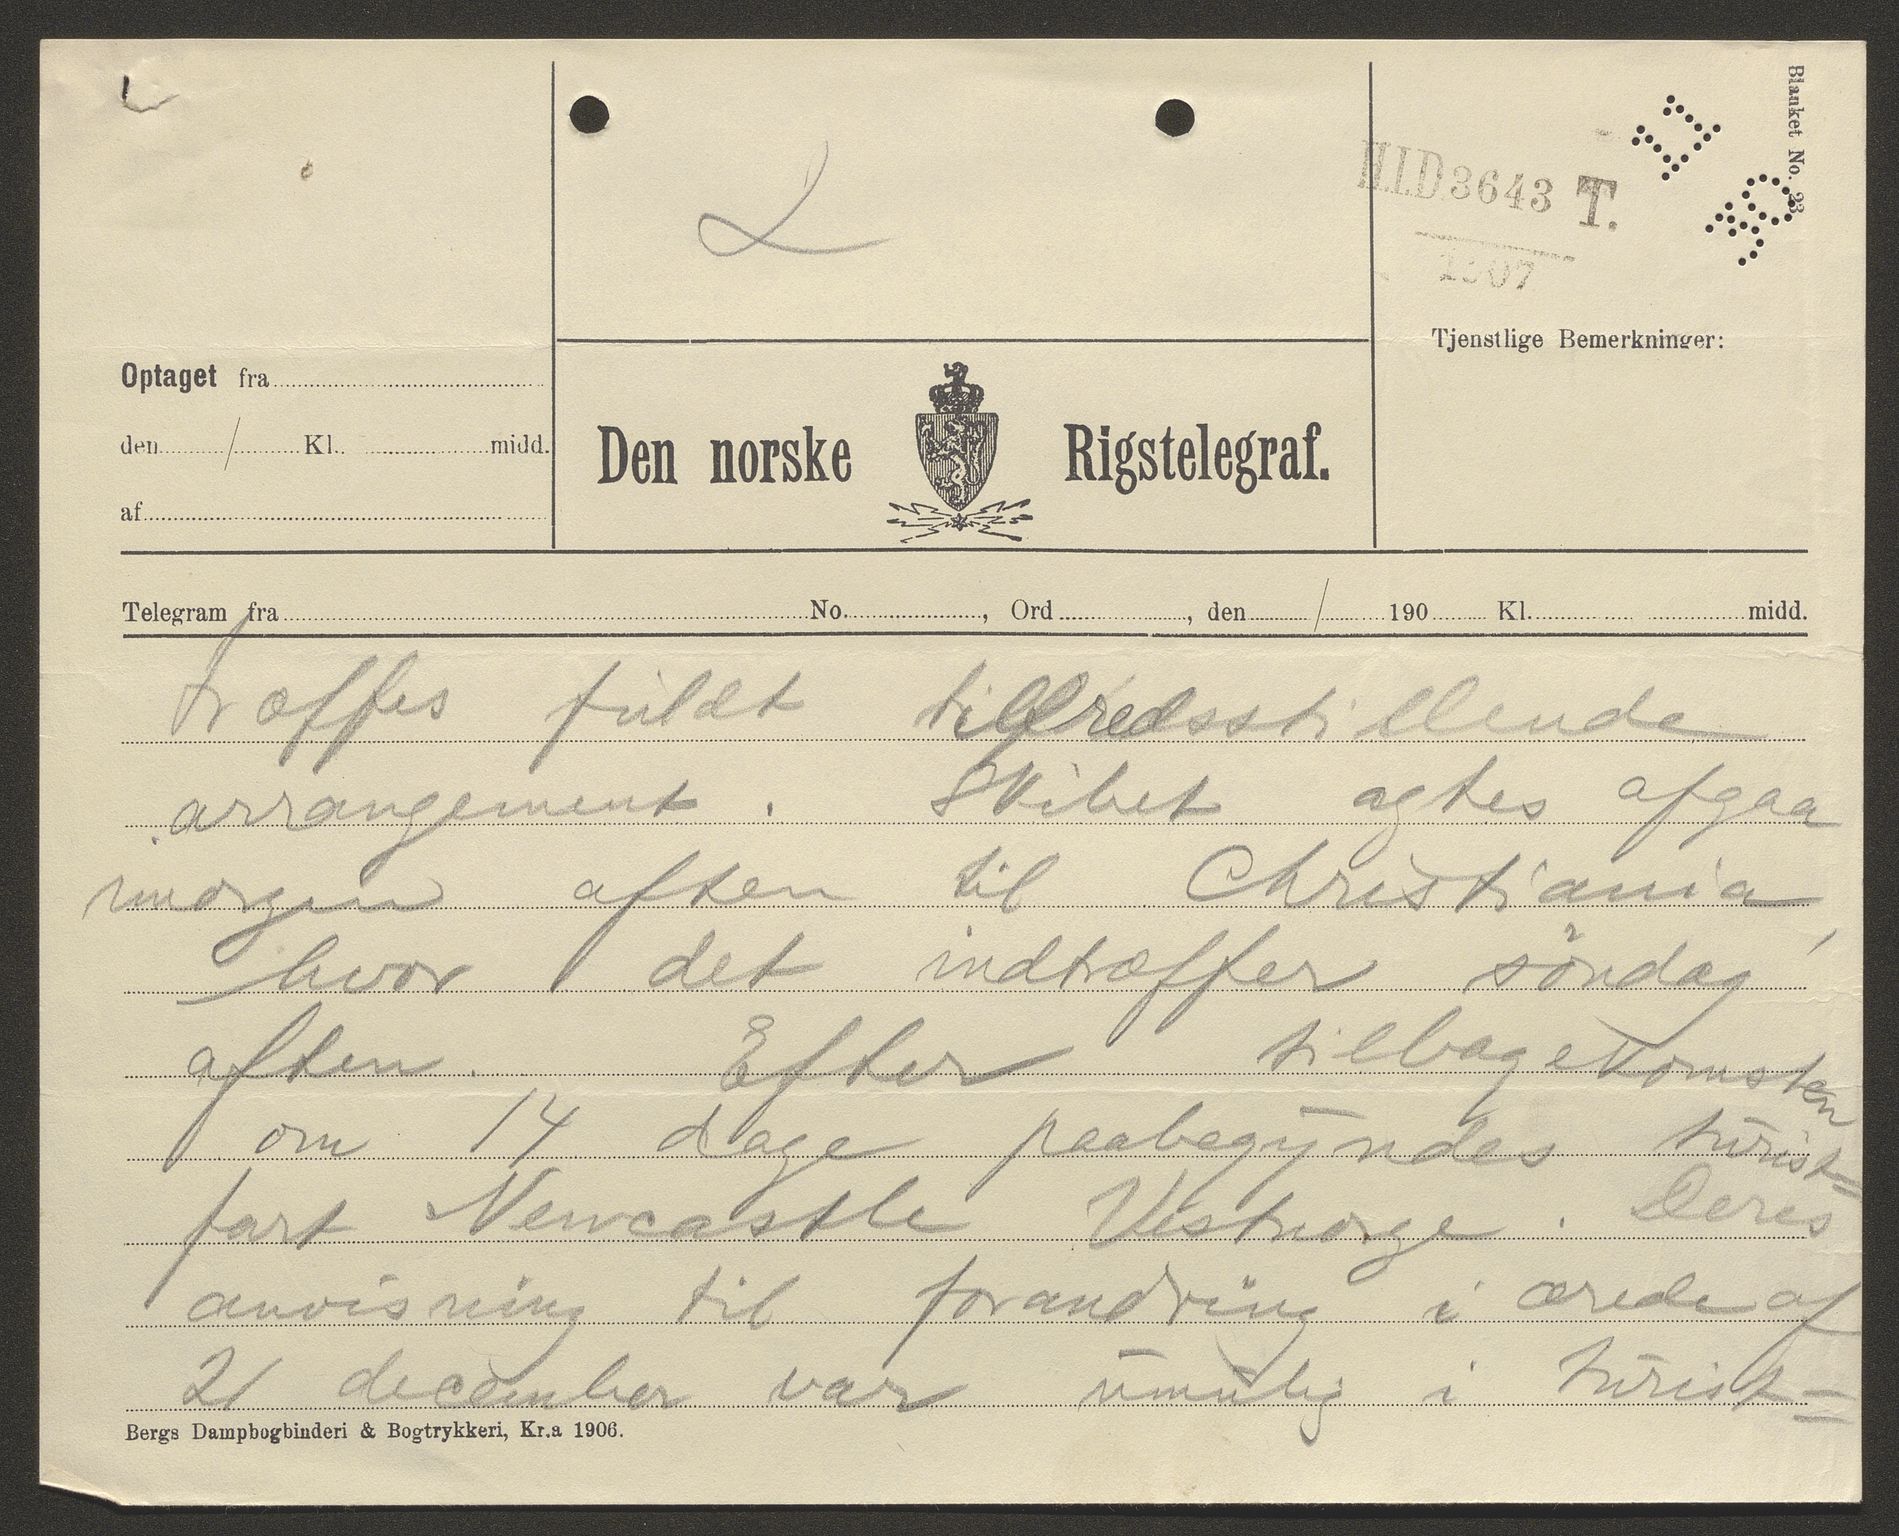 Blanket No. 23
H.I.D 3643 T.
1907
2
Tjenstlige Bemerkninger:
Optaget fra
den / Kl. midd.
af
Den norske Rigstelegraf.
Telegram fra No. , Ord , den / 190 Kl. midd.
træffes fuldt tilfredsstillende
arrangement. Skibet agtes afgaa
imorgen aften til Christiania,
hvor det indtræffer söndag
aften. Efter tilbagekomsten
om 14 dage paabegyndes turist=
fart Newcastle Vestnorge. Deres
anvisning til forandring i ærede af
21 december var umulig i turist=
Bergs Dampbogbinderi & Bogtrykkeri, Kr.a 1906.